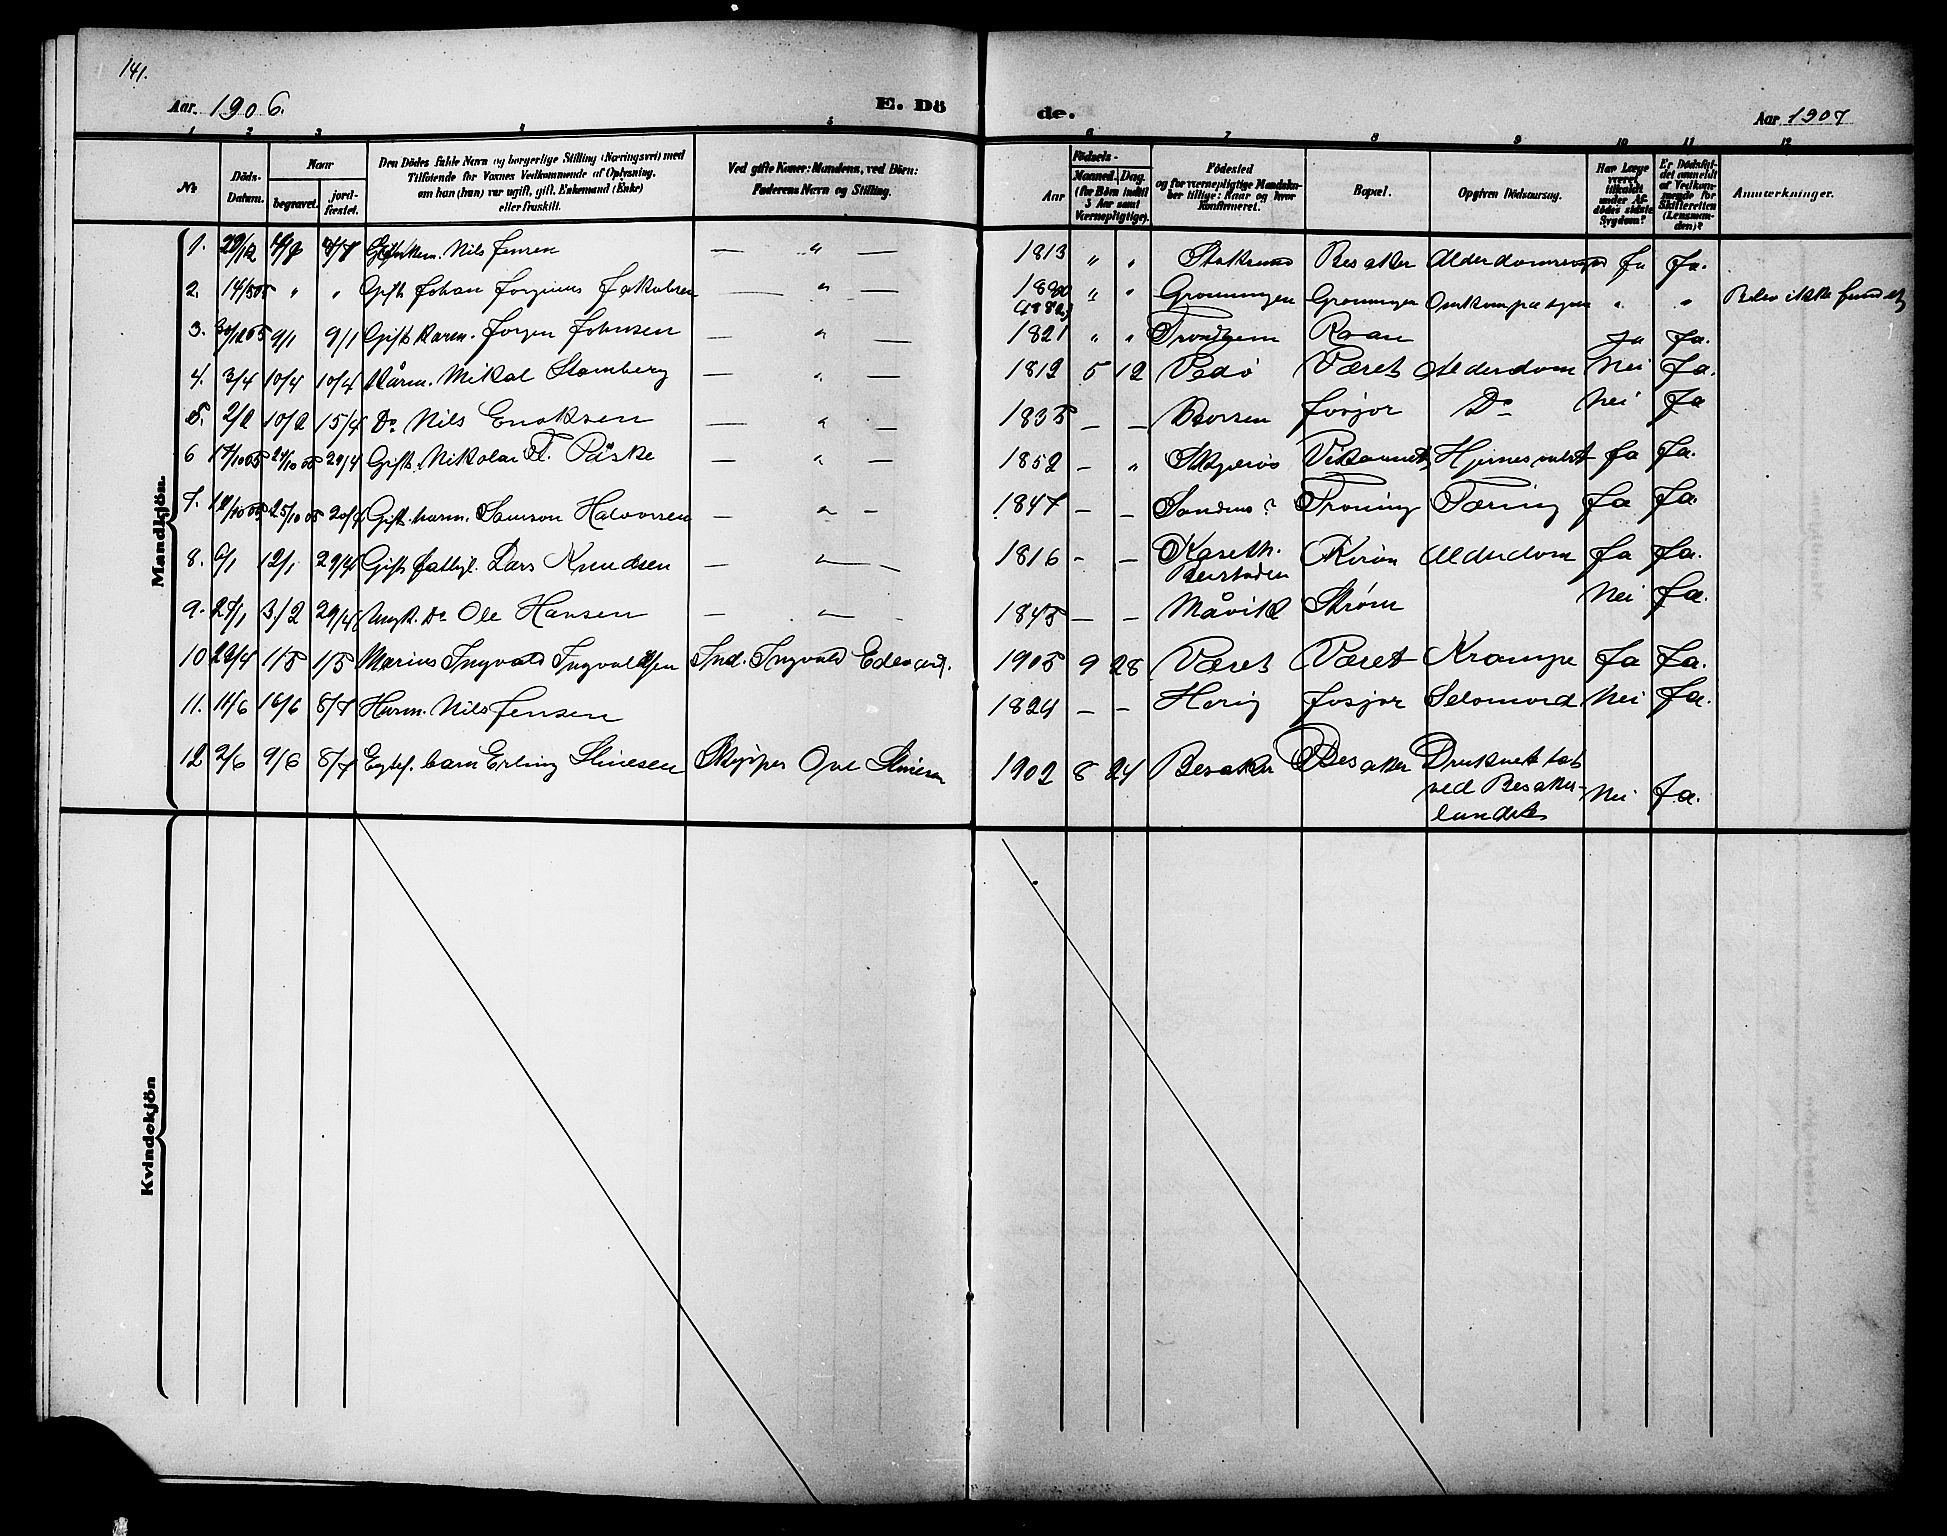 141.
Aar 1906. E. Dö de. Aar 1907
1 2 3 4 5 6 7 8 9 10 11 12
No Döds-Datum. Naar begravet. jordfæstet. Den Dödes fulde Navn og borgerlige Stilling (Næringsvei) med Tilföiende for Voxnes Vedkommende af Oplysning, om han (hun) var ugift, gift, Enkemand (Enke) eller fraskilt. Ved gifte Koner: Mandens, ved Börn: Faderens Navn og Stilling. Aar Födsels- Maaned. Dag. (for Börn indtil 5 Aar samt Værnepligtige). Födested og for værnepligtige Mandskaber tillige: Naar og hvor konfirmeret. Bopæl. Opgiven Dödsaarsag. Har Læge været tilkaldt under Afdödes sidste Sygdom? Er Dödsfaldet anmeldt af Vedkommende for Skifteretten (Lensmanden)? Anmærkninger.
Mandkjön.
1. 29/12 Nils Jensen — " — 1813 " " Stoksund Besaker ja ja.
2. 14/505 " " Gift Johan Jørginus Jakobsen — " — 1880 (1882) " " Groningen Groningen Omkom paa sjøen " " Blev ikke fundet
3. 30/1205 9/1 9/1 Gift Kaarm. Jørgen Johnsen — " — 1821 " " Trondhjem Raan ja ja.
4. 3/4 10/4 10/4 Kårm. Mikal Stamberg — " — 1812 5 12 Vedø Været Alderdom Nei ja.
5. 2/2 10/2 15/4 Do Nils Enoksen — " — 1835 — — Borsen Josjor Do Nei ja
6 17/1005 24/1005 29/4 Gift. Nikolai F. Påske — " — 1852 — " ja ja.
7. 18/1005 25/1005 20/4 Gift. kaarm. Samson Halvorsen — " — 1847 — — Sandnes? Troning Tæring ja ja.
8. 6/1 12/1 29/4 Gift fattigl. Lars Knudsen — " — 1816 — — Beistaden Alderdom ja ja.
9. 27/1 3/2 29/4 Ungk. Do Ole Hansen — " — 1843 — — Måvik Strøm Nei ja.
10 29/4 1/5 1/5 Marius Ingvald Ingvaldsen Ind. Ingvald Edvard. 1905 9 28 Været Været Krampe ja ja.
11. 11/6 16/6 8/7 Kaarm. Nils Jensen 1824 — — Josjor Selvmord Nei ja.
12 2/6 9/6 8/7 Egtef. barn Erling Stinesen Skipper Ove Stinesen 1902 8 24 Besaker Besaker Druknet tat
ved Besaker-
landet Nei ja.
Kvindekjön